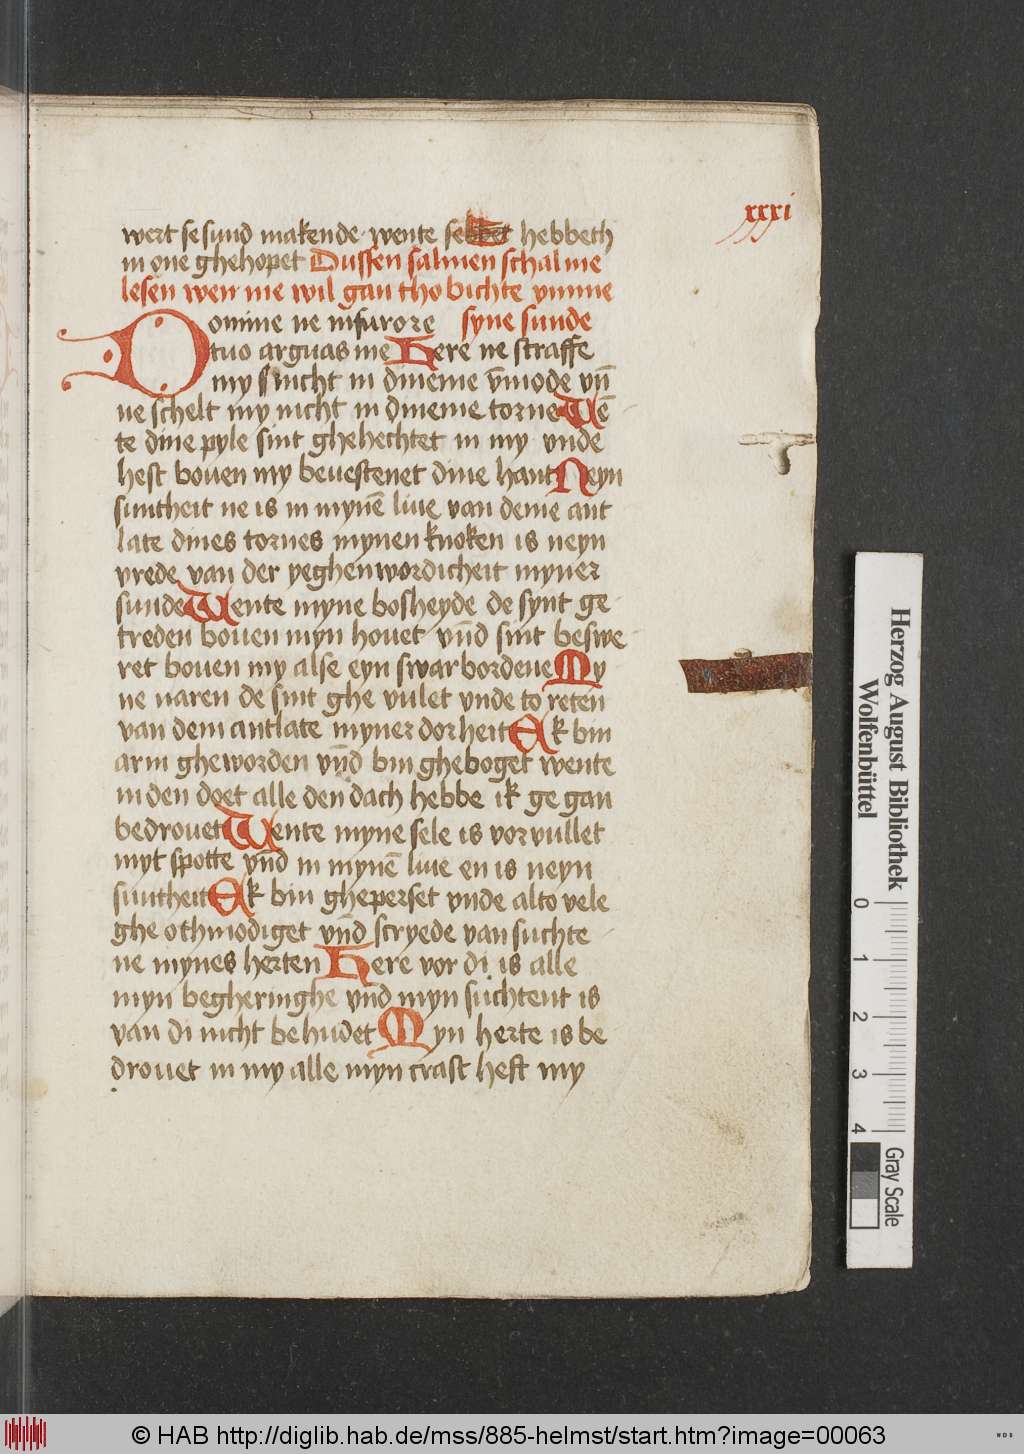 xxxi
wert se sund makende wente se hebbeth
in one ghehopet Dussen salmen schal me
lesen wen me wil gan tho bichte vmme
Domine ne in furore syne sunde
tuo arguas me Here ne straffe
my nicht in dineme v̄mode vn̄
ne schelt my nicht in dineme torne Wē
te dine pyle sint ghehechtet in my vnde
hest bouen my beuestenet dine hant Neyn
suntheit ne is in mynē liue van deme ant
late dines tornes mynen knoken is neyn
vrede van der yeghenwordicheit myner
sunde Wente myne bosheyde de synt ge
treden bouen myn houet vn̄d sint beswe
ret bouen my alse eyn swar bordene My
ne naren de sint ghe vulet vnde to reten
van dem antlate myner dorheit Ek bin
arm gheworden vn̄d bin gheboget wente
in den doet alle den dach hebbe ik ge gan
bedrouet Wente myne sele is vorvullet
myt spotte vn̄d in mynē liue en is neyn
suntheit Ek bin gheperset vnde alto vele
ghe othmodiget vn̄d scryede van suchte
ne mynes herten Here vor di is alle
myn begheringhe vnd myn suchtent is
van di nicht be hudet Myn herte is be
drouet in my alle myn craft heft my
Herzog August Bibliothek
Wolfenbüttel
0 1 2 3 4
Gray Scale
© HAB http://diglib.hab.de/mss/885-helmst/start.htm?image=00063